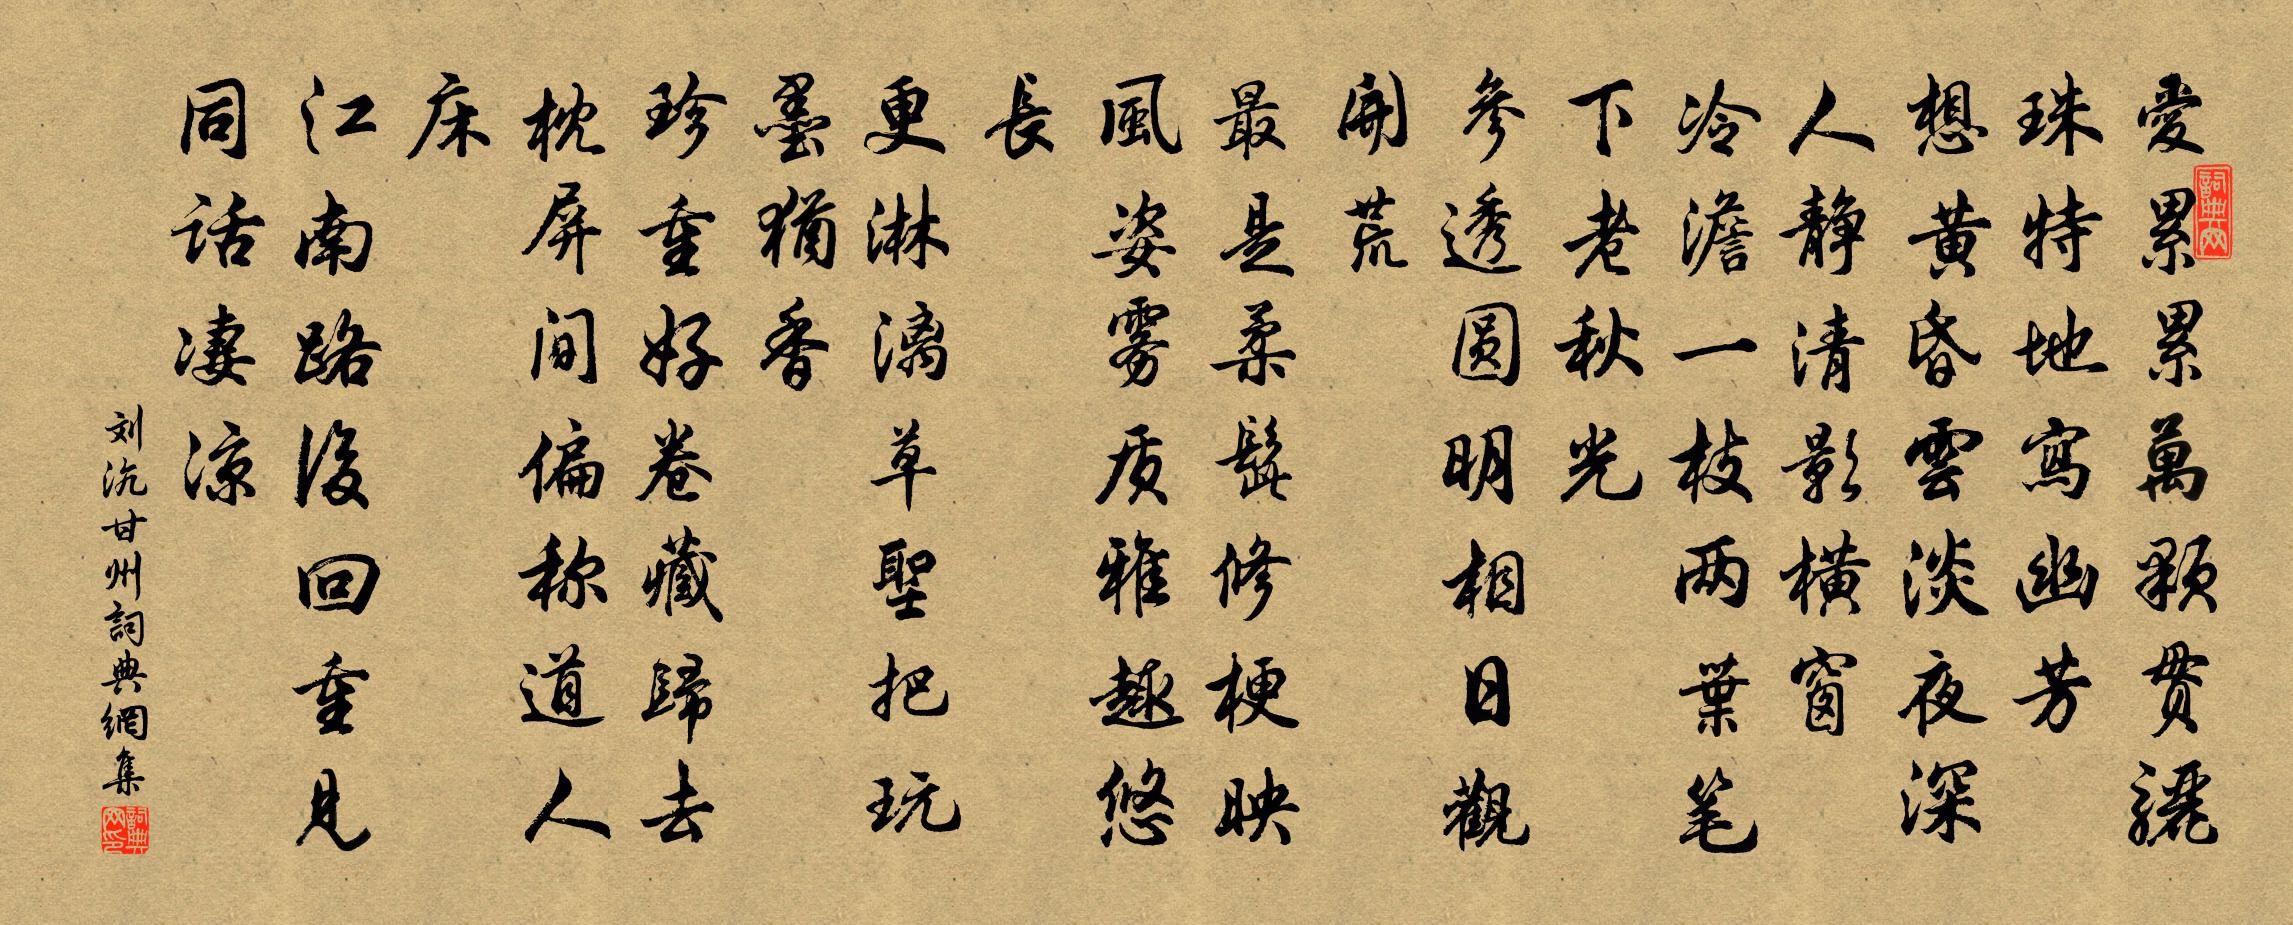 愛累累萬顆貫驪
珠特地寫幽芳
想黄昏雲淡夜深
人静清影横窗
冷澹一枝两葉笔
下老秋光
參透圆明相日觀
開荒
最是柔髭修梗映
風姿雾质雅趣悠
長
更淋漓草聖把玩
墨猶香
珍重好卷藏歸去
枕屏间偏称道人
床
江南路後回重見
同话凄凉
刘沆甘州詞典網集
詞典网
詞典网印